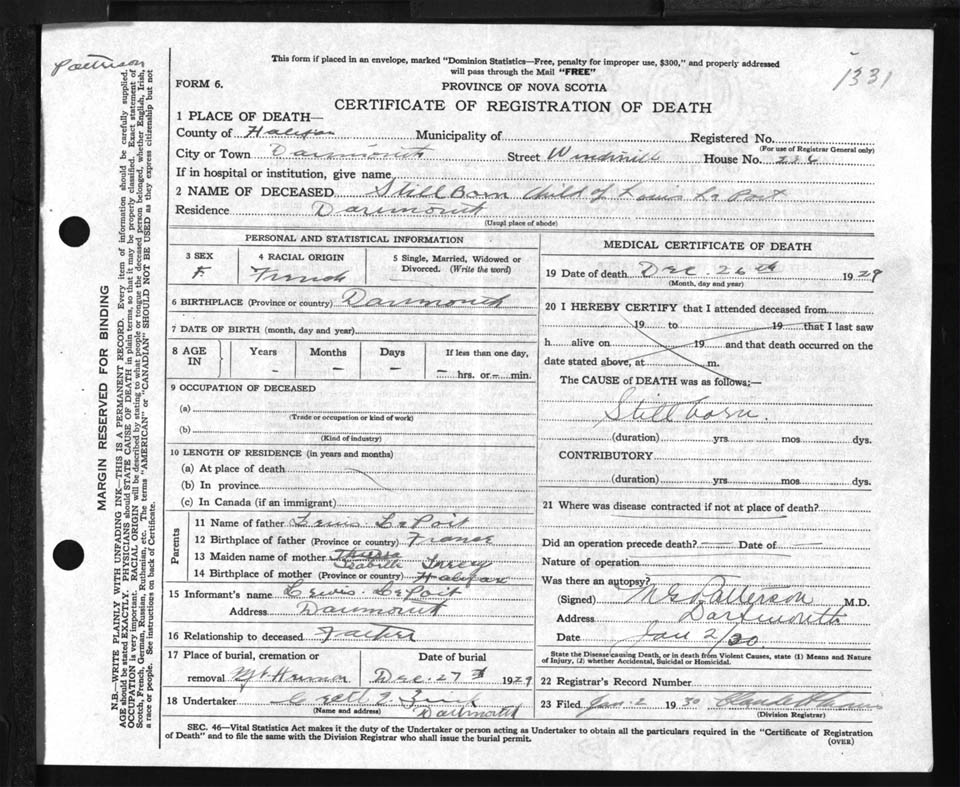 Patterson
1331
This form if placed in an envelope, marked "Dominion Statistics—Free, penalty for improper use, $300," and properly addressed
will pass through the Mail "FREE"
FORM 6.
PROVINCE OF NOVA SCOTIA
CERTIFICATE OF REGISTRATION OF DEATH
1 PLACE OF DEATH—
County of Halifax Municipality of Registered No.
(For use of Registrar General only)
City or Town Dartmouth Street Windmill House No. 226
If in hospital or institution, give name
2 NAME OF DECEASED Still Born Child of Louis Le Poit
Residence Dartmouth
(Usual place of abode)
MARGIN RESERVED FOR BINDING
N.B.—WRITE PLAINLY WITH UNFADING INK—THIS IS A PERMANENT RECORD. Every item of information should be carefully supplied.
AGE should be stated EXACTLY. PHYSICIANS should STATE CAUSE OF DEATH in plain terms, so that it may be properly classified. Exact statement of
OCCUPATION is very important. RACIAL ORIGIN will be described by stating to what people or tongue the deceased person belonged, whether English, Irish,
Scotch, French, German, Russian, Ruthenian, etc. The terms "AMERICAN" or "CANADIAN" SHOULD NOT BE USED as they express citizenship but not
a race or people. See instructions on back of Certificate.
PERSONAL AND STATISTICAL INFORMATION
3 SEX 4 RACIAL ORIGIN 5 Single, Married, Widowed or
Divorced. (Write the word)
F French
6 BIRTHPLACE (Province or country) Dartmouth
7 DATE OF BIRTH (month, day and year)
8 AGE IN Years Months Days If less than one day,
– – – – hrs. or – min.
9 OCCUPATION OF DECEASED
(a)
(Trade or occupation or kind of work)
(b)
(Kind of industry)
10 LENGTH OF RESIDENCE (in years and months)
(a) At place of death
(b) In province
(c) In Canada (if an immigrant)
Parents
11 Name of father Lewis LePoit
12 Birthplace of father (Province or country) France
13 Maiden name of mother Isabelle
14 Birthplace of mother (Province or country) Halifax
15 Informant's name Lewis LePoit
Address Dartmouth
16 Relationship to deceased Father
17 Place of burial, cremation or Date of burial
removal Mt Hermon Dec. 27 1929
18 Undertaker
(Name and address) Dartmouth
MEDICAL CERTIFICATE OF DEATH
19 Date of death Dec. 26th 1929
(Month, day and year)
20 I HEREBY CERTIFY that I attended deceased from
19 to 19 that I last saw
h alive on 19 and that death occurred on the
date stated above, at m.
The CAUSE of DEATH was as follows:—
Stillborn.
(duration) yrs mos dys.
CONTRIBUTORY
(duration) yrs mos dys.
21 Where was disease contracted if not at place of death?
Did an operation precede death? — Date of —
Nature of operation
Was there an autopsy?
(Signed) Patterson M.D.
Address Dartmouth
Date Jan 2/30
State the Disease causing Death, or in death from Violent Causes, state (1) Means and Nature
of Injury, (2) whether Accidental, Suicidal or Homicidal.
22 Registrar's Record Number
23 Filed Jan. 2 1930
(Division Registrar)
SEC. 46—Vital Statistics Act makes it the duty of the Undertaker or person acting as Undertaker to obtain all the particulars required in the "Certificate of Registration
of Death" and to file the same with the Division Registrar who shall issue the burial permit.
(OVER)